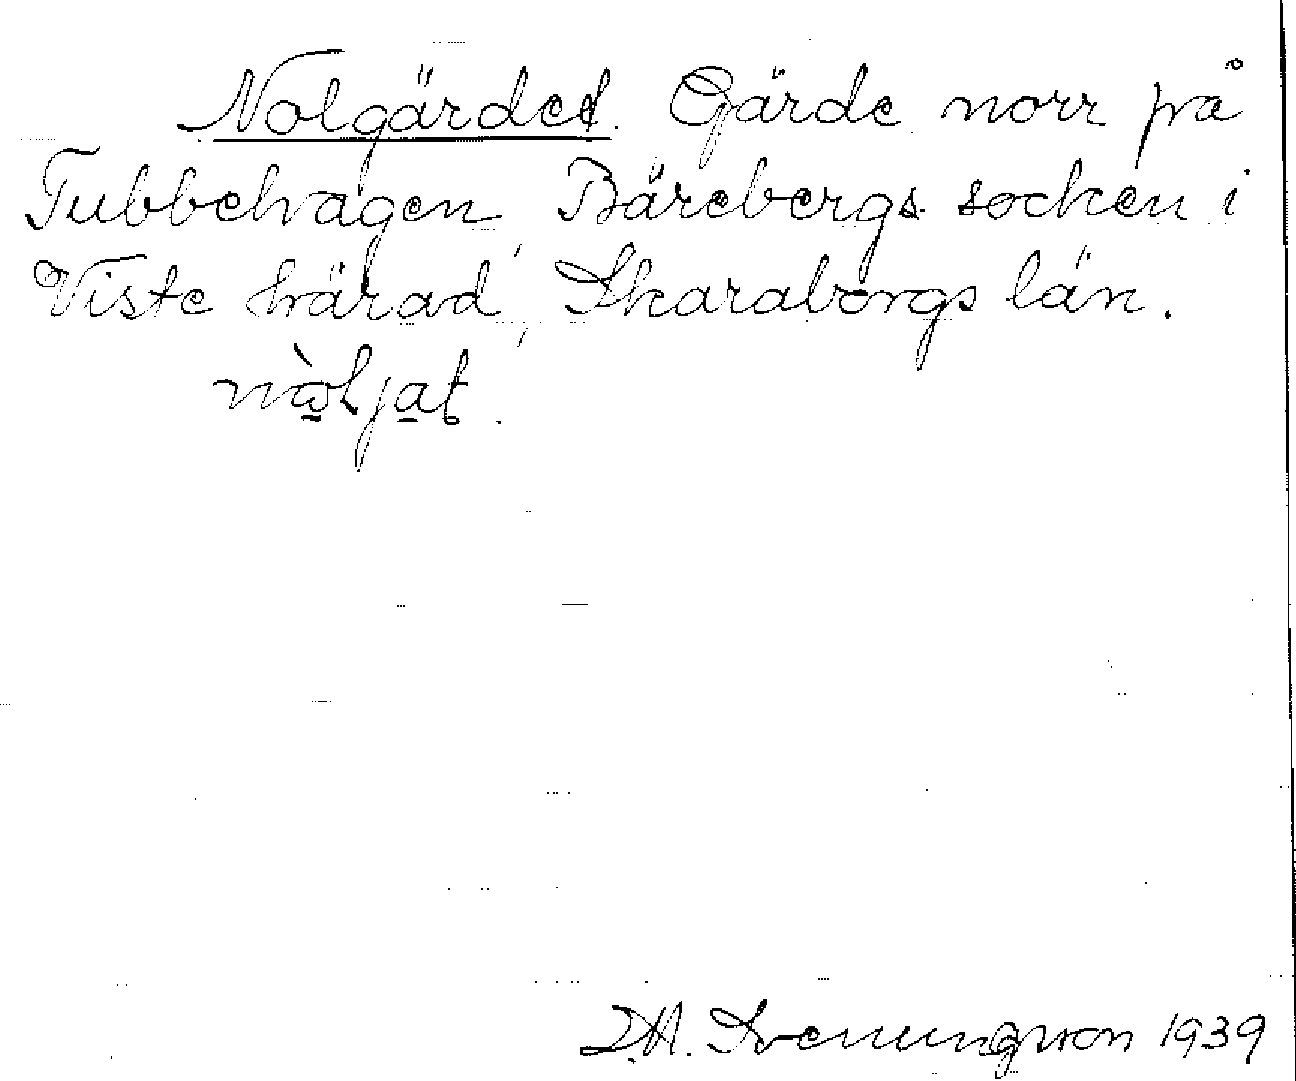 Nolgärdet. Gärde norr på
Tubbehagen, Bärebergs socken i
Viste härad, Skaraborgs län.
nɷ̀ljat.
D.A. Svenungsson 1939